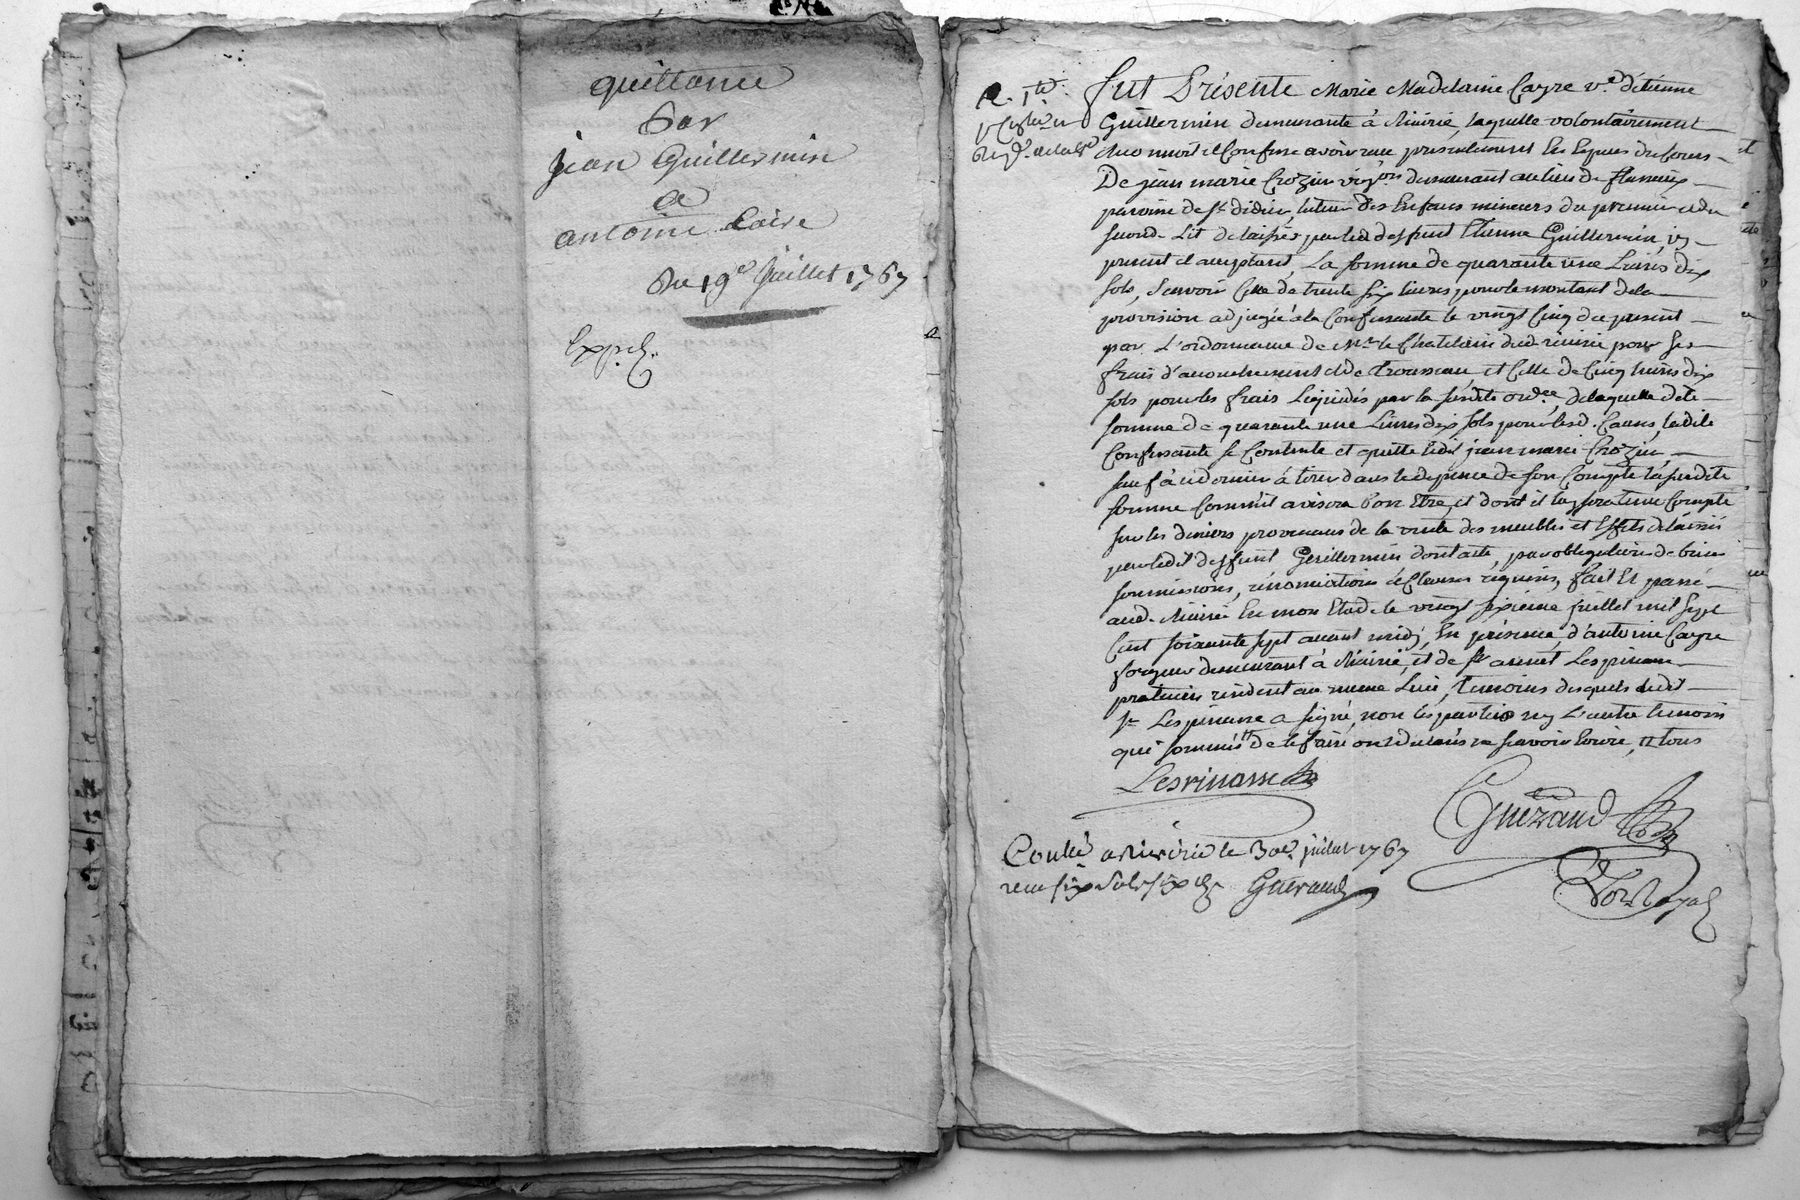 quittance
Par
jean Guillermin
a
antoine Caire
Du 19e Juillet 1767
Exp.
Fut Présente Marie Madelaine Cayre ve. d'étienne
Guillermin demeurante à Rivirie, laquelle volontairement
de jean marie Crozier vigon demeurant au lieu de
paroisse de St. didier, tuteur des Enfans mineurs du premier et du
second Lit delaissés par led. deffunt Etienne Guillermin, icy
present et acceptant, La somme de quarante une Livres dix
sols, Scavoir Celle de trente six livres pour le montant de la
provision adjugée à la Confessante le vingt Cinq du present
par L'ordonnance de Mr. le Chatelain dud. Rivirie pour ses
frais d'accouchement et de trousseau, et Celle de Cinq livres dix
sols pour les frais Liquidés par la susdite ordce, de laquelle dite
somme de quarante une Livres dix sols pour lesd. Causes, ladite
Confessante se Contente et quitte ledit jean marie Crozier,
sauf à ce dernier à tirer dans la depense de son Compte la susdite
somme Comm'il avisera bon Etre, et dont il luy sera tenu Compte
sur les deniers provenans de la vente des meubles et Effets délaissés
par ledit deffunt Guillermin dont acte, par obligation de biens
soumissions, rénonciations & Clauses requises, fait Et passé
aud. Rivirie En mon Etude le vingt sixième juillet mil sept
Cent soixante sept avant midy, En présence d'antoine Cayre
forgeur demeurant à Rivirie, et de sr. annet Lespinasse
praticien résident au meme Lieu, temoins desquels ledit
sr. Lespinasse a signé, non les parties ny L'autre temoin
qui sommés de le faire ont declarés ne scavoir Ecrire, tous
Lespinasse
Guéraud
Conlé a Riviérie le 30e. juillet 1767
reçu six sols six drs Guéraud